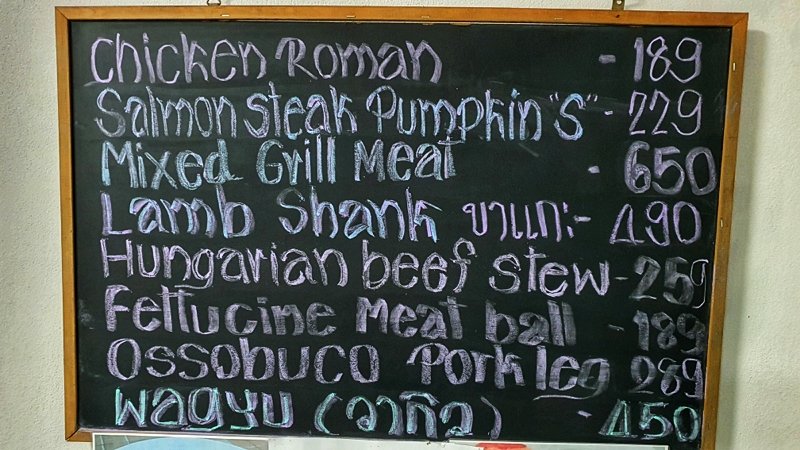 Chicken Roman - 189
Salmon Steak Pumpkin "S" - 229
Mixed Grill Meat - 650
Lamb Shank ขาแกะ - 490
Hungarian beef stew - 259
Fettucine Meat ball - 189
Ossobuco Pork leg 289
Wagyu (วากิว) - 450